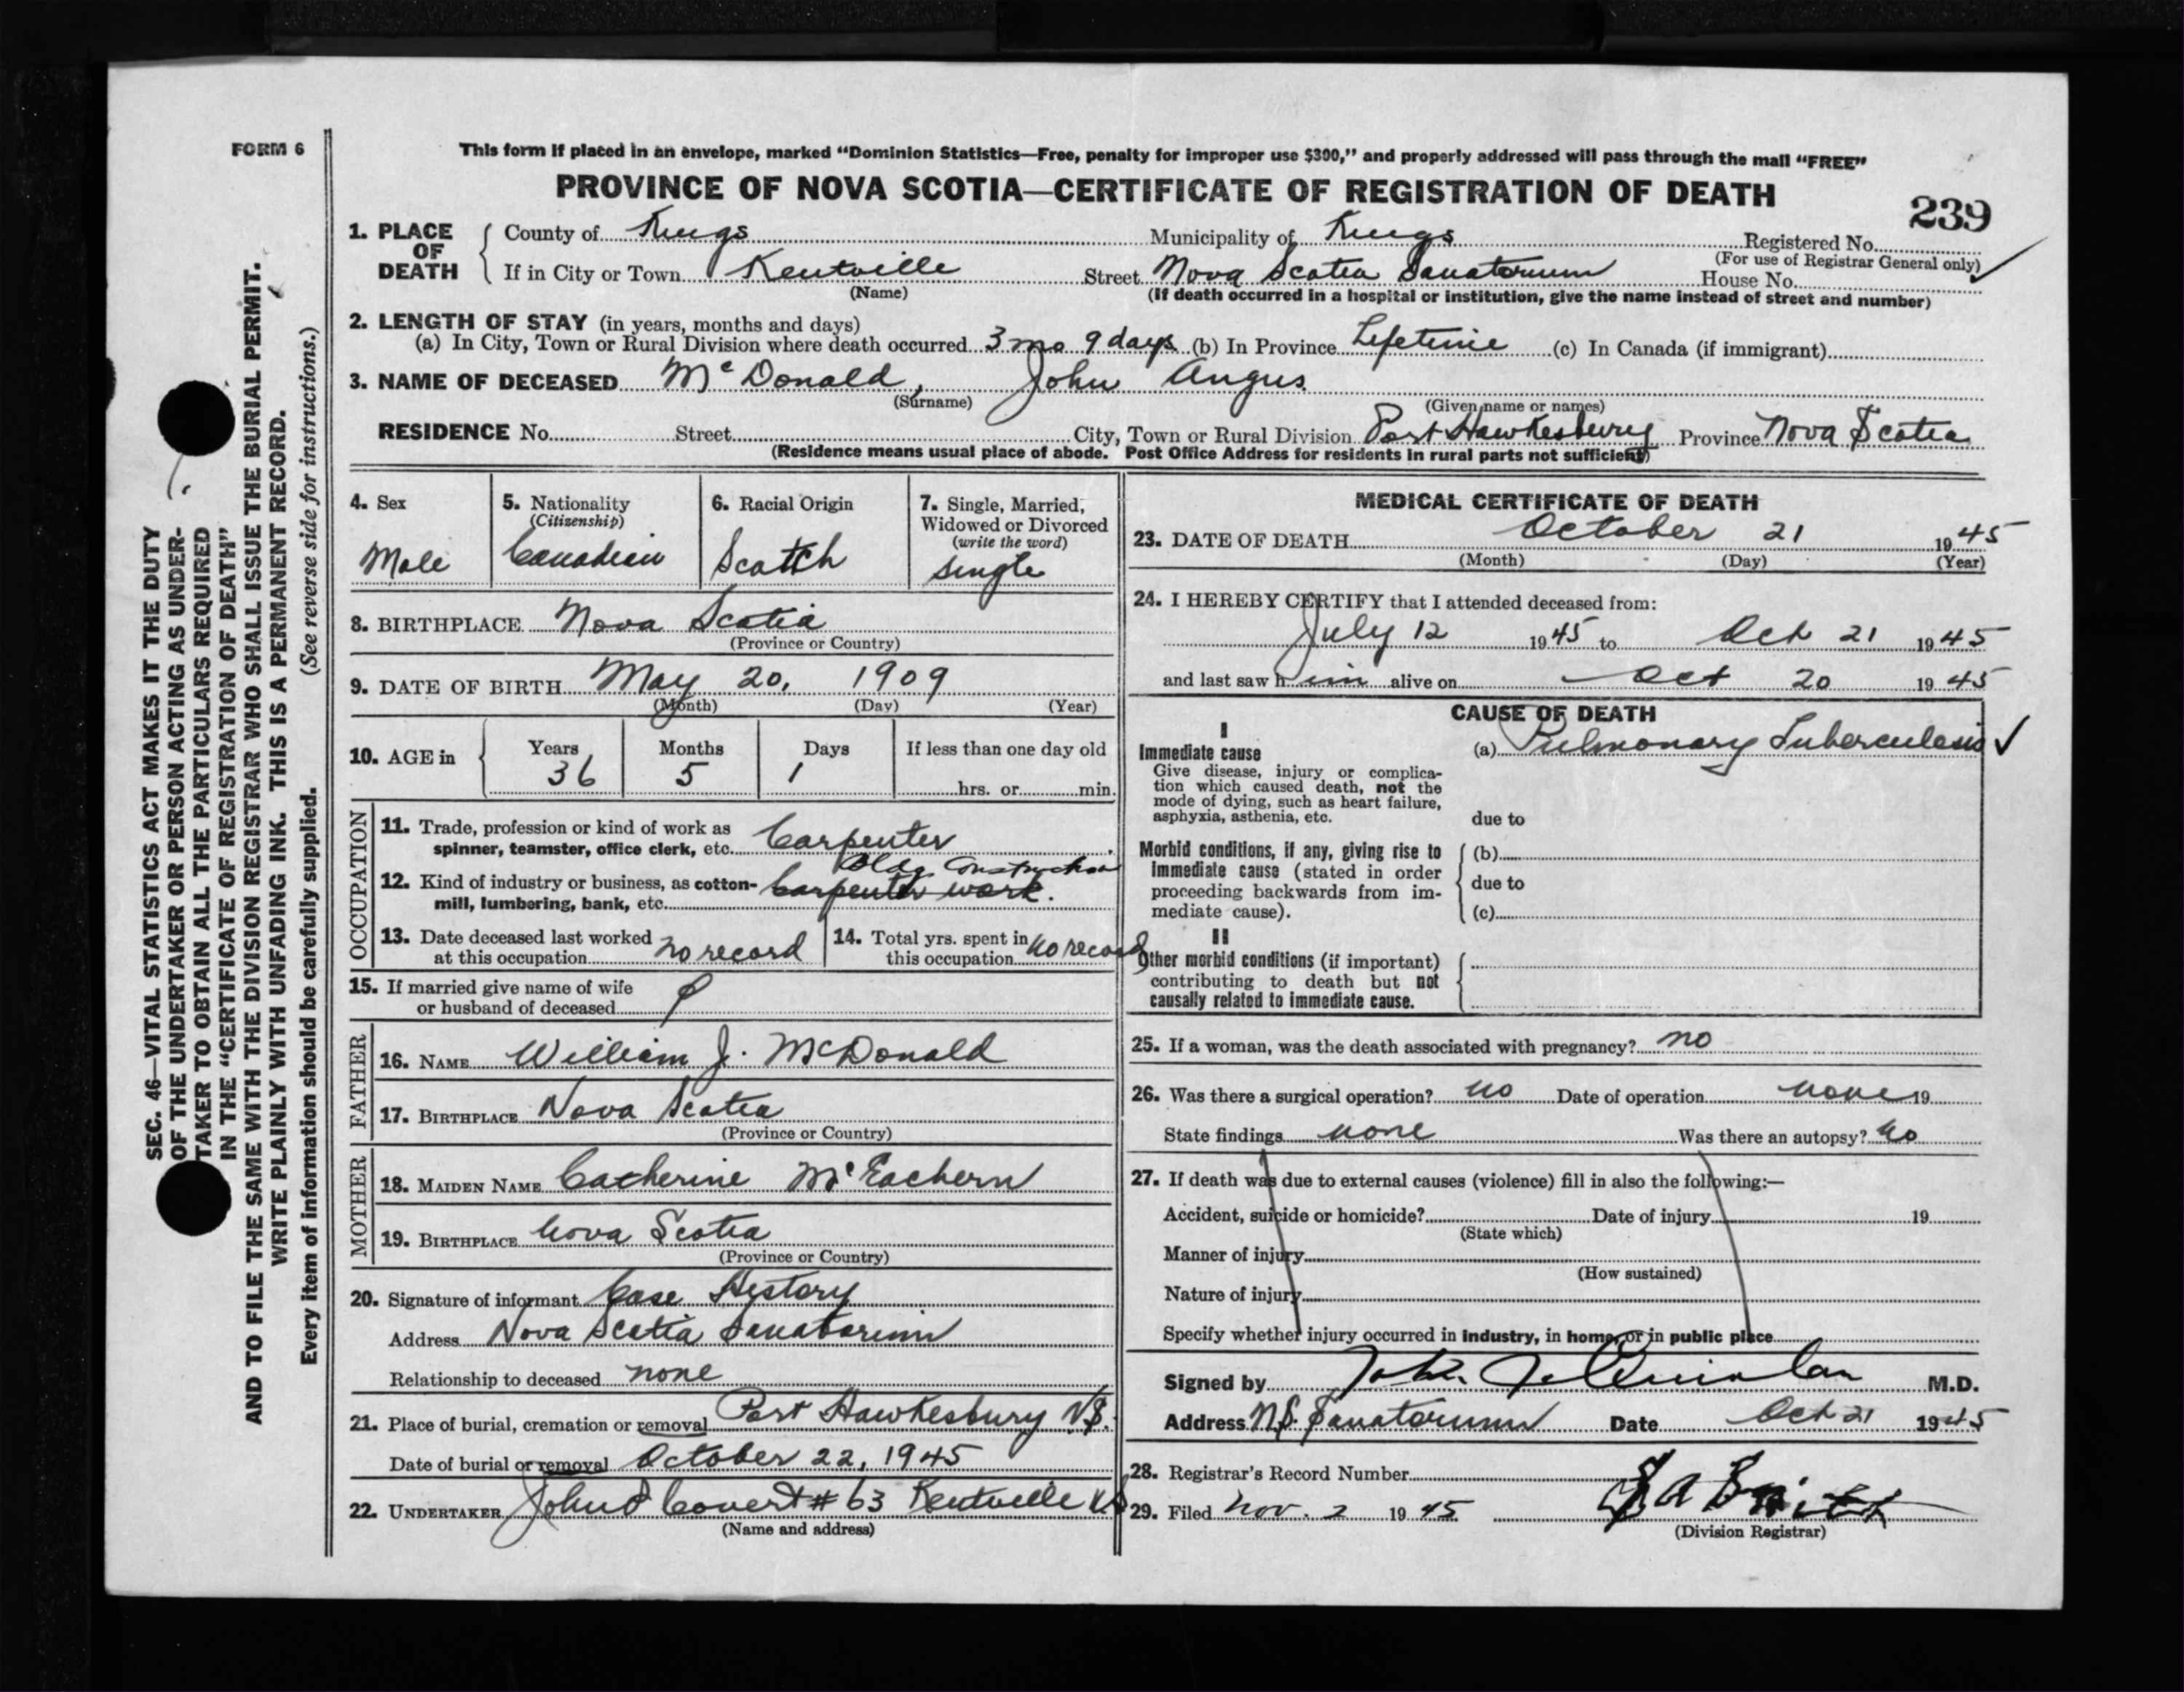 FORM 6
This form if placed in an envelope, marked "Dominion Statistics—Free, penalty for improper use $300," and properly addressed will pass through the mail "FREE"
PROVINCE OF NOVA SCOTIA—CERTIFICATE OF REGISTRATION OF DEATH
239
1. PLACE OF DEATH County of Kings Municipality of Kings Registered No.
(For use of Registrar General only)
If in City or Town Kentville Street Nova Scotia Sanatorium House No.
(Name) (If death occurred in a hospital or institution, give the name instead of street and number)
2. LENGTH OF STAY (in years, months and days)
(a) In City, Town or Rural Division where death occurred 3 mo 9 days (b) In Province Lifetime (c) In Canada (if immigrant)
3. NAME OF DECEASED McDonald, John Angus.
(Surname) (Given name or names)
RESIDENCE No. Street City, Town or Rural Division Port Hawkesbury Province Nova Scotia
(Residence means usual place of abode. Post Office Address for residents in rural parts not sufficient)
4. Sex
Male
5. Nationality
(Citizenship)
Canadian
6. Racial Origin
Scotch
7. Single, Married, Widowed or Divorced
(write the word)
Single
8. BIRTHPLACE Nova Scotia
(Province or Country)
9. DATE OF BIRTH May 20, 1909
(Month) (Day) (Year)
10. AGE in Years Months Days If less than one day old
36 5 1 hrs. or min.
OCCUPATION
11. Trade, profession or kind of work as Carpenter
spinner, teamster, office clerk, etc.
Bldg. Construction
12. Kind of industry or business, as cotton- Carpenter work.
mill, lumbering, bank, etc.
13. Date deceased last worked at this occupation no record
14. Total yrs. spent in this occupation no record
15. If married give name of wife
or husband of deceased
FATHER
16. NAME William J. McDonald
17. BIRTHPLACE Nova Scotia
(Province or Country)
MOTHER
18. MAIDEN NAME Catherine McEachern
19. BIRTHPLACE Nova Scotia
(Province or Country)
20. Signature of informant Case History
Address Nova Scotia Sanatorium
Relationship to deceased none
21. Place of burial, cremation or removal Port Hawkesbury N.S.
Date of burial or removal October 22, 1945
22. UNDERTAKER John Covert # 63 Kentville NS
(Name and address)
MEDICAL CERTIFICATE OF DEATH
23. DATE OF DEATH October 21 1945
(Month) (Day) (Year)
24. I HEREBY CERTIFY that I attended deceased from:
July 12 1945 to Oct 21 1945
and last saw him alive on Oct 20 1945
CAUSE OF DEATH
I
Immediate cause (a) Pulmonary Tuberculosis
Give disease, injury or complica-
tion which caused death, not the
mode of dying, such as heart failure,
asphyxia, asthenia, etc. due to
Morbid conditions, if any, giving rise to (b)
immediate cause (stated in order
proceeding backwards from im- due to
mediate cause). (c)
II
Other morbid conditions (if important)
contributing to death but not
causally related to immediate cause.
25. If a woman, was the death associated with pregnancy? no
26. Was there a surgical operation? no Date of operation none 19
State findings none Was there an autopsy? no
27. If death was due to external causes (violence) fill in also the following:—
Accident, suicide or homicide? Date of injury 19
(State which)
Manner of injury
(How sustained)
Nature of injury
Specify whether injury occurred in industry, in home, or in public place
Signed by Quinlan M.D.
Address N.S. Sanatorium Date Oct 21 1945
28. Registrar's Record Number
29. Filed Nov. 2 1945
(Division Registrar)
SEC. 46—VITAL STATISTICS ACT MAKES IT THE DUTY
OF THE UNDERTAKER OR PERSON ACTING AS UNDER-
TAKER TO OBTAIN ALL THE PARTICULARS REQUIRED
IN THE "CERTIFICATE OF REGISTRATION OF DEATH"
AND TO FILE THE SAME WITH THE DIVISION REGISTRAR WHO SHALL ISSUE THE BURIAL PERMIT.
WRITE PLAINLY WITH UNFADING INK. THIS IS A PERMANENT RECORD.
Every item of information should be carefully supplied. (See reverse side for instructions.)